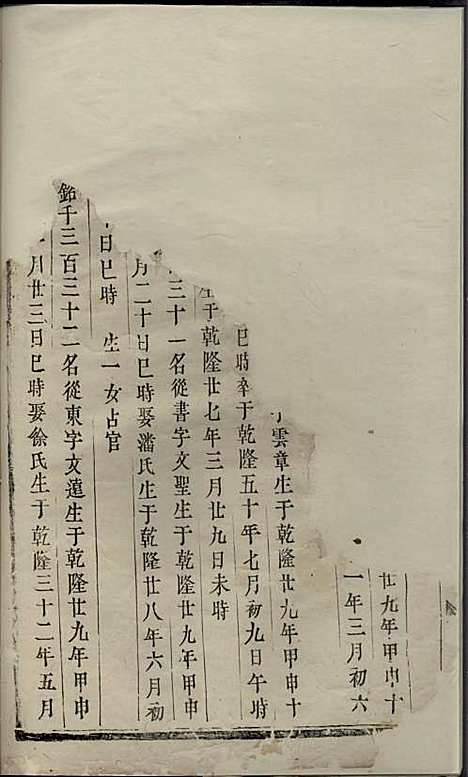 廿九年甲申十
一年三月初六
雲章生于乾隆廿九年甲申十
巳時卒于乾隆五十年七月初九日午時
生于乾隆廿七年三月廿九日未時
三十一名從書字文聖生于乾隆廿九年甲申
月二十日巳時娶潘氏生于乾隆廿八年六月初
日巳時 生一女占官
鉐千三百三十二名從東字文遠生于乾隆廿九年甲申
月廿三日巳時娶徐氏生于乾隆三十二年五月